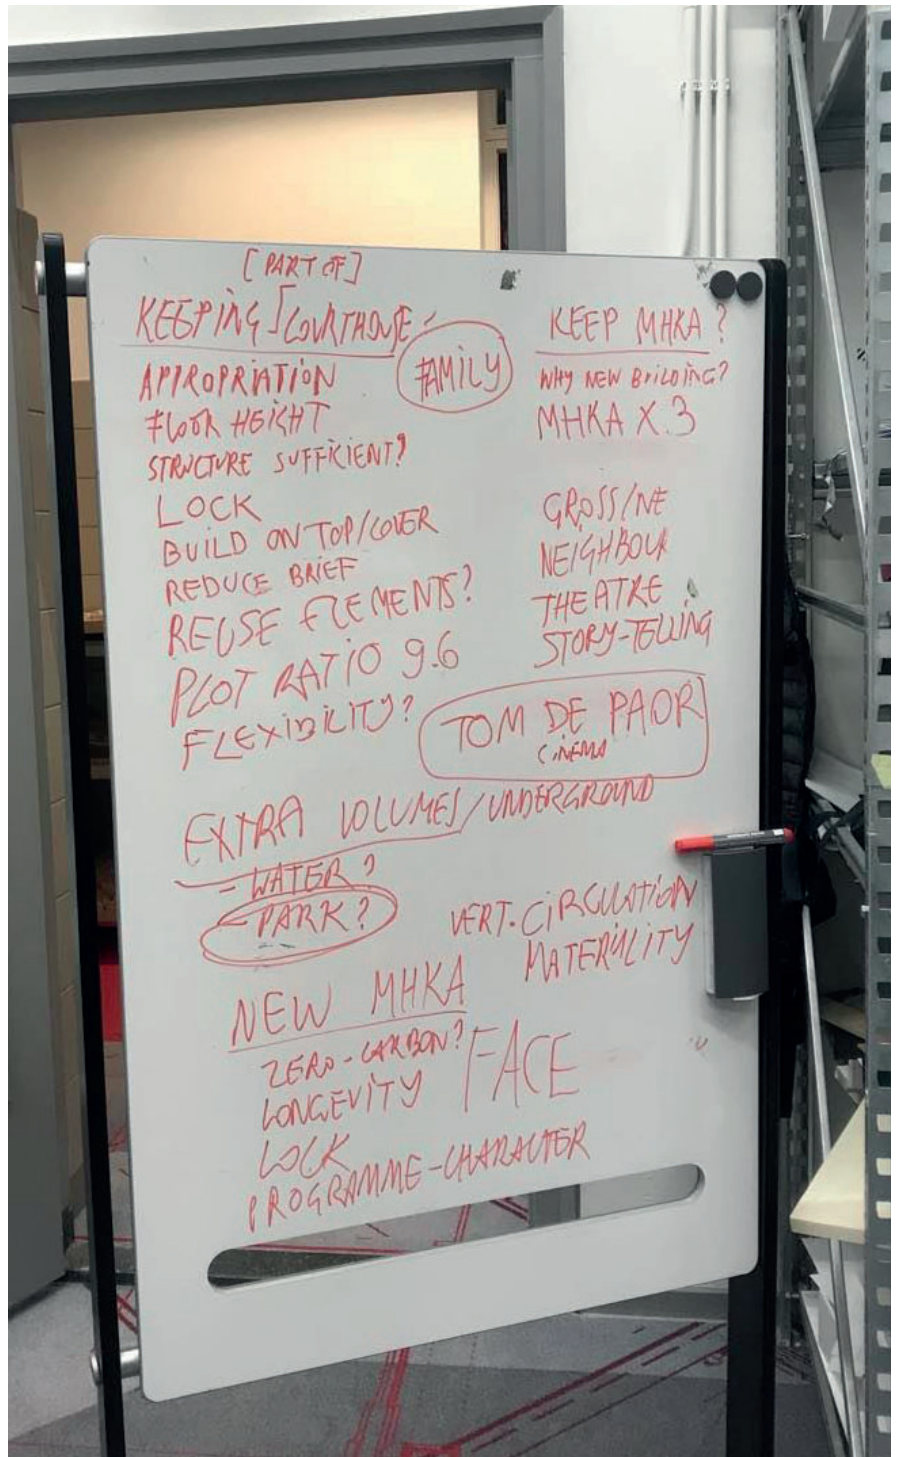 [PART OF]
KEEPING COURTHOUSE
APPROPRIATION
FLOOR HEIGHT
STRUCTURE SUFFICIENT?
LOCK
BUILD ON TOP/COVER
REDUCE BRIEF
REUSE ELEMENTS?
PLOT RATIO 9.6
FLEXIBILITY?
FAMILY
KEEP MHKA?
WHY NEW BUILDING?
MHKA X.3
GROSS/NE
NEIGHBOUR
THEATRE
STORY-TELLING
TOM DE PAOR
CINEMA
EXTRA VOLUMES/UNDERGROUND
- WATER?
- PARK?
VERT. CIRCULATION
MATERIALITY
NEW MHKA
ZERO-CARBON?
LONGEVITY
LOCK
PROGRAMME-CHARACTER
FACE